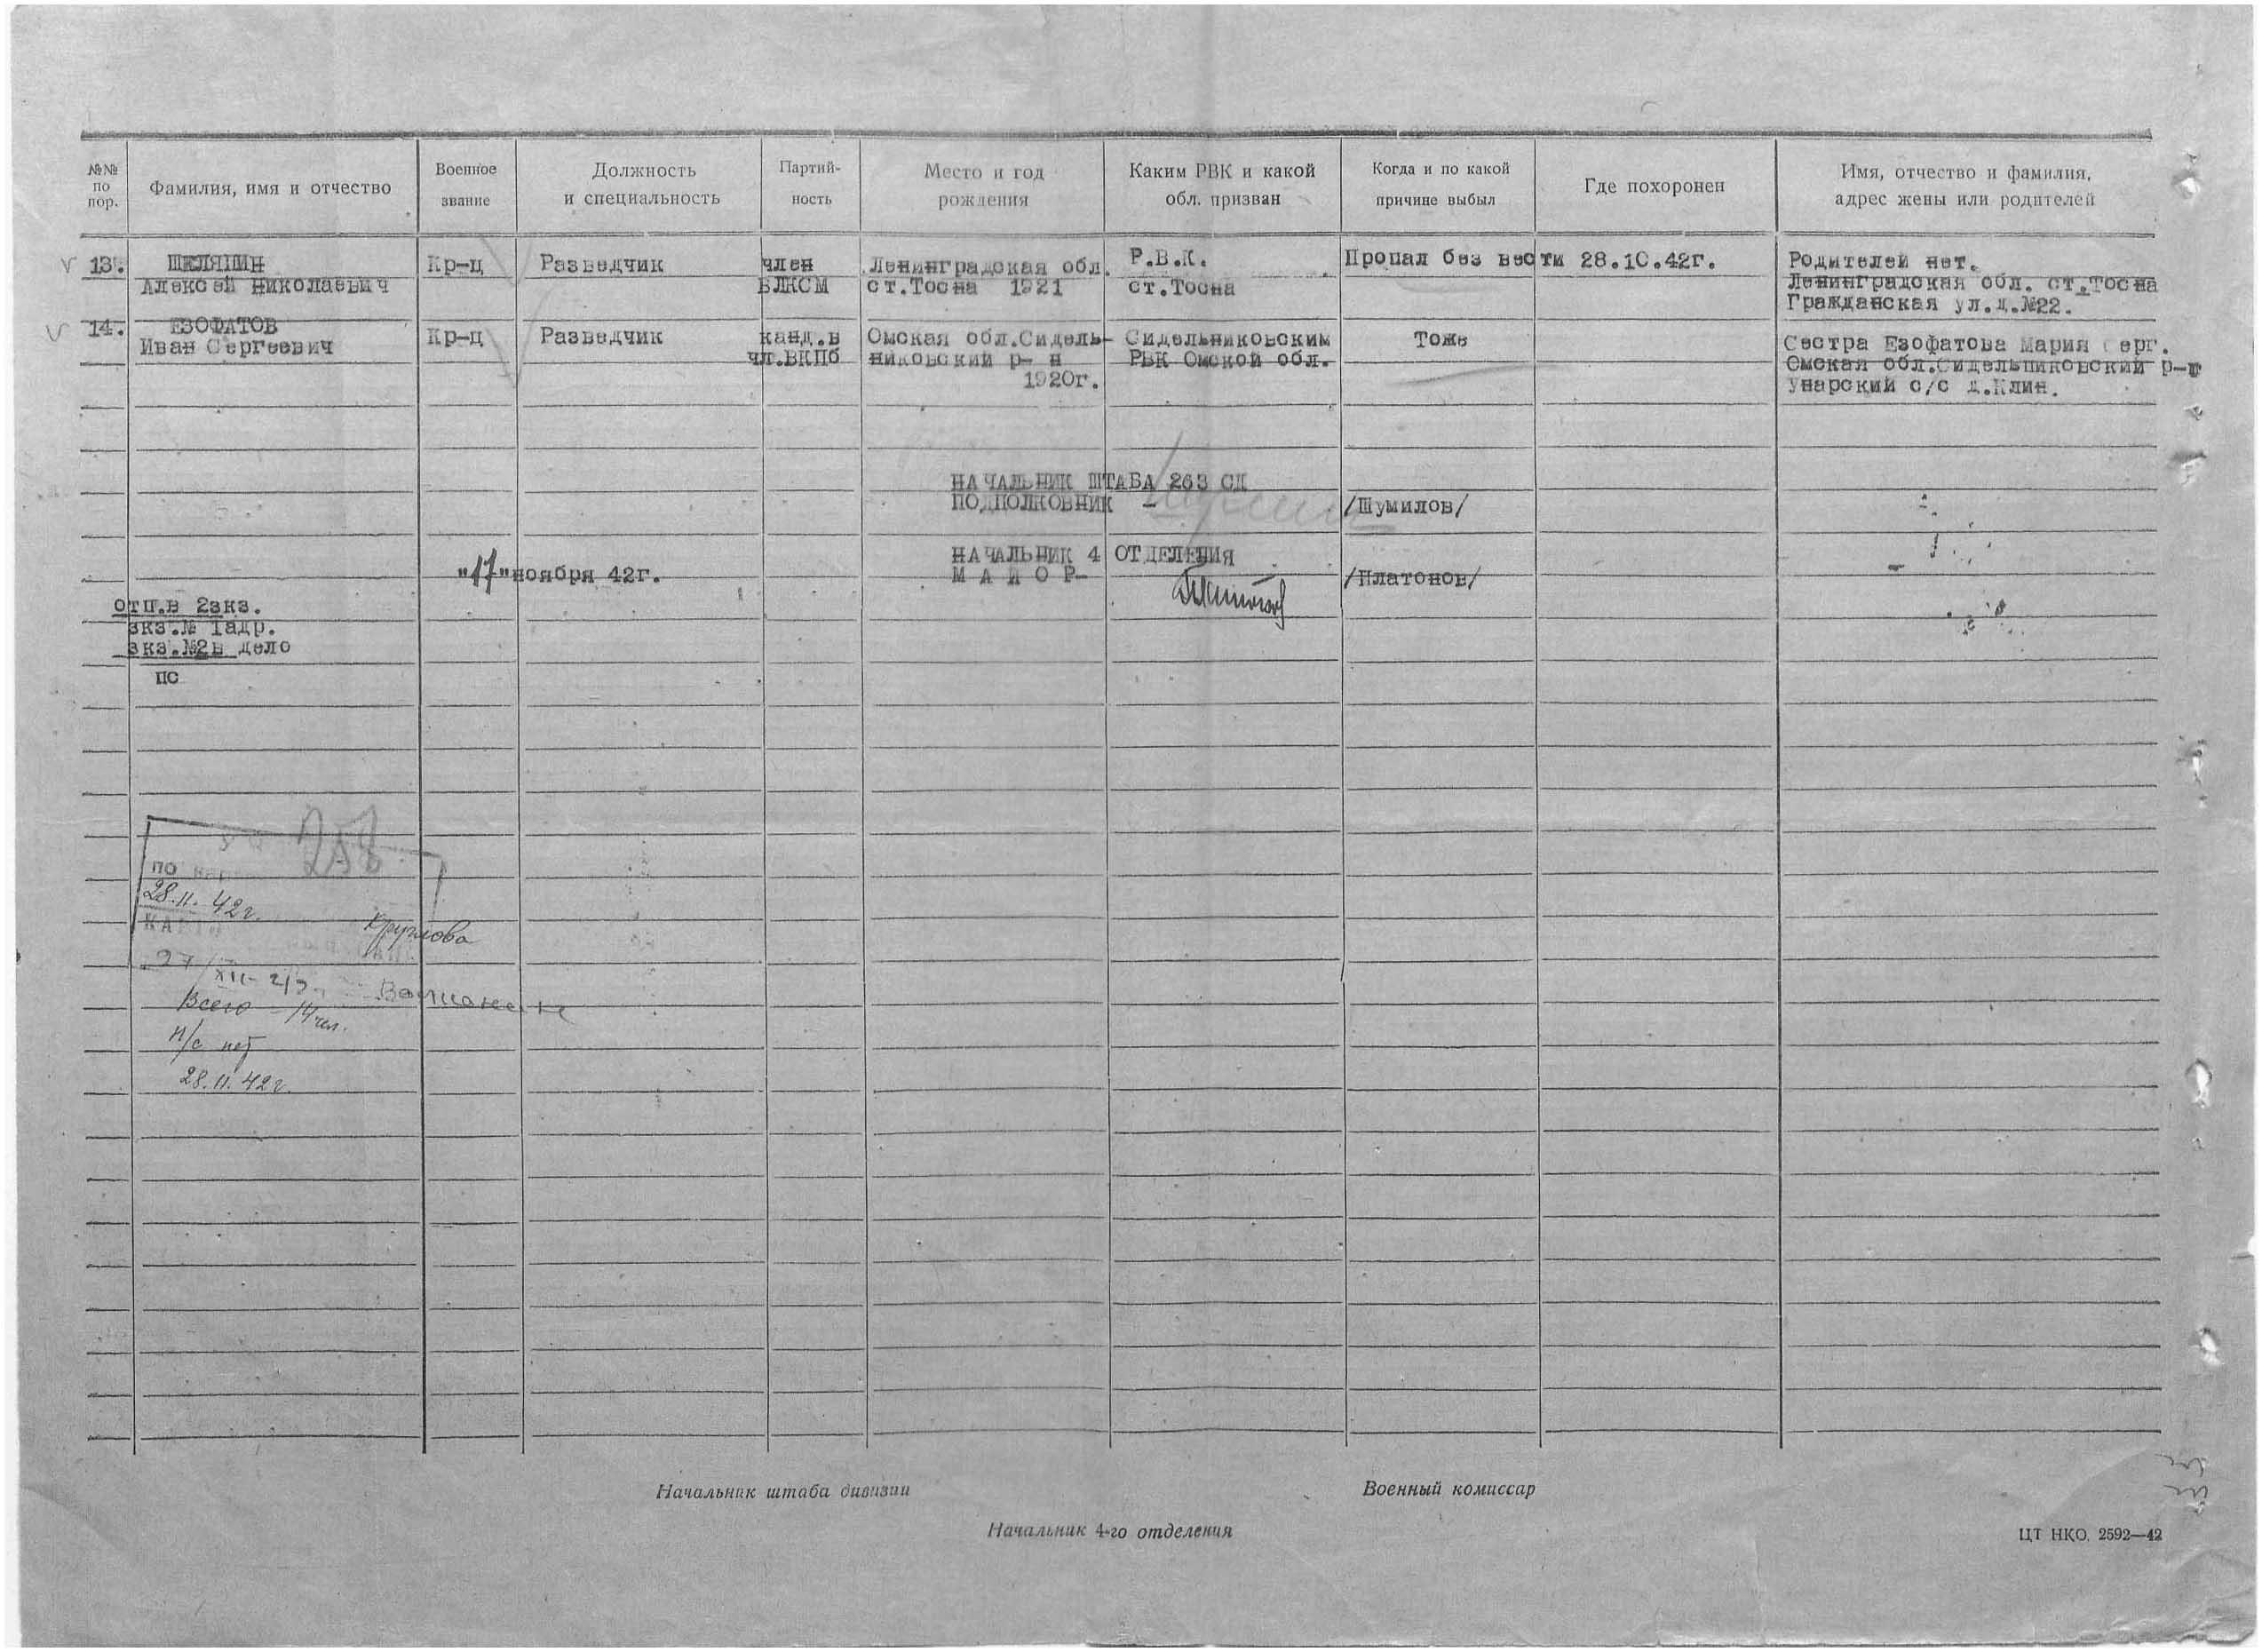 №№ по пор.
Фамилия, имя и отчество
Военное звание
Должность и специальность
Партий-ность
Место и год рождения
Каким РВК и какой обл. призван
Когда и по какой причине выбыл
Где похоронен
Имя, отчество и фамилия, адрес жены или родителей
13. ШЕЛЯПИН Кр-ц Разведчик член Ленинградская обл. Р.В.К. Пропал без вести 28.10.42г. Родителей нет.
Алексей Николаевич ВЛКСМ ст.Тосна 1921 ст.Тосна Ленинградская обл. ст.Тосна
Гражданская ул.д.№22.
14. ЕЗОФАТОВ Кр-ц Разведчик канд.в Омская обл.Сидель- Сидельниковским Тоже Сестра Езофатова Мария Серг.
Иван Сергеевич чл.ВКПб никовский р-н РВК Омской обл. Омская обл.Сидельниковский р-н
1920г. Унарский с/с д.Клин.
НАЧАЛЬНИК ШТАБА 263 СД
ПОДПОЛКОВНИК - /Шумилов/
НАЧАЛЬНИК 4 ОТДЕЛЕНИЯ
"17"ноября 42г. МАЙОР- /Платонов/
отп.в 2экз.
экз.№ 1адр.
экз.№2в дело
пс
258
по
28.11.42г.
Круглова
27/XII-42г.
Всего - 14 чел.
н/с нет
28.11.42г.
Начальник штаба дивизии Военный комиссар
Начальник 4-го отделения
ЦТ НКО. 2592—42